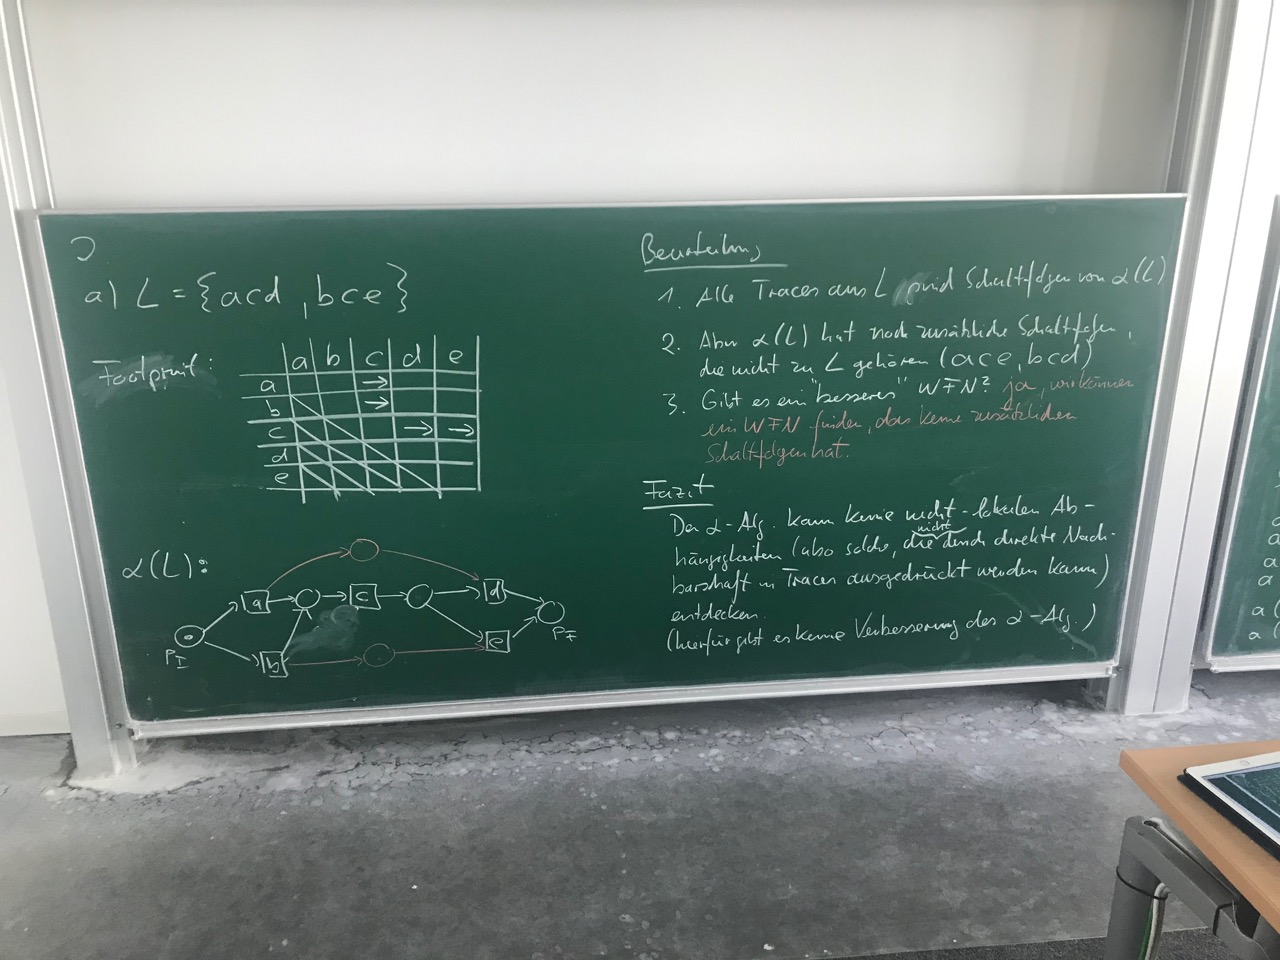 a) L = {acd , bce}
Footprint:
a b c d e
a →
b →
c → →
d
e
α(L):
a c d
P_I b e P_F
Beurteilung
1. Alle Traces aus L sind Schaltfolgen von α(L)
2. Aber α(L) hat noch zusätzliche Schaltfolgen,
die nicht zu L gehören (ace, bcd)
3. Gibt es ein "besseres" WFN? ja, wir können
ein WFN finden, das keine zusätzlichen
Schaltfolgen hat.
Fazit
Der α-Alg. kann keine nicht-lokalen Ab-
hängigkeiten (also solche, die nicht durch direkte Nach-
barschaft in Traces ausgedrückt werden kann)
entdecken.
(hierfür gibt es keine Verbesserung des α-Alg.)